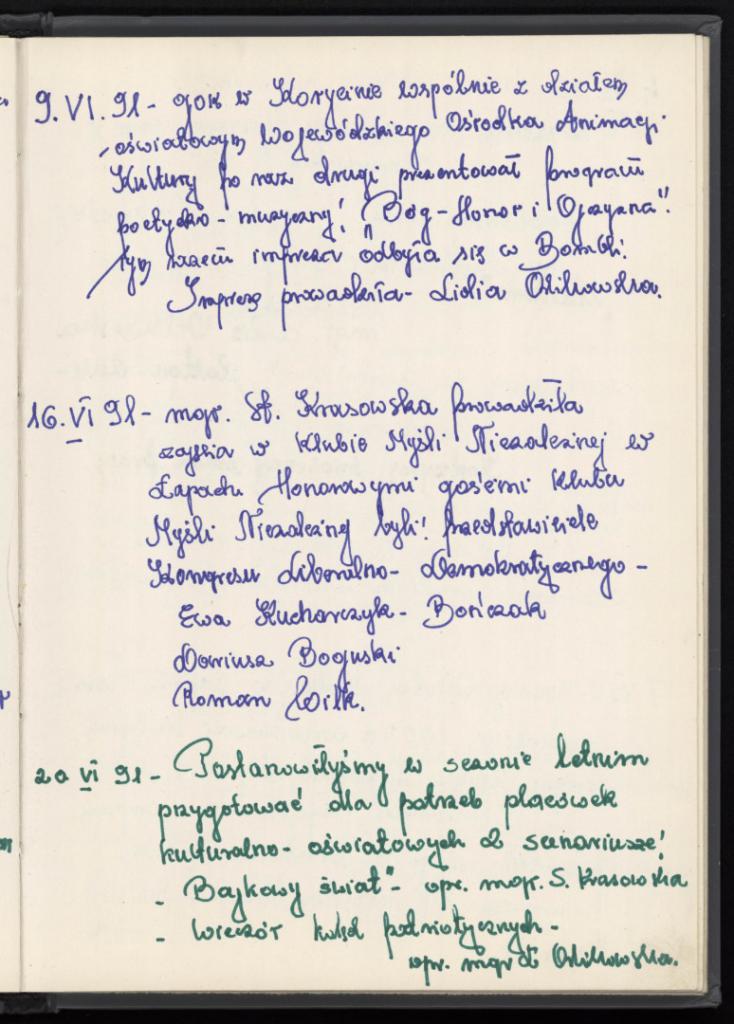 9.VI.91 - GOK w Korycinie wspólnie z działem
oświatowym Wojewódzkiego Ośrodka Animacji
Kultury po raz drugi prezentował program
poetycko - muzyczny: "Bóg - Honor i Ojczyzna".
Tym razem impreza odbyła się w Bombli.
Imprezę prowadziła - Lidia Osikowska.
16.VI 91 - mgr. St. Krasowska prowadziła
zajęcia w Klubie Myśli Niezależnej w
Łapach. Honorowymi gośćmi Klubu
Myśli Niezależnej byli: przedstawiciele
Kongresu Liberalno - Demokratycznego -
Ewa Kucharczyk - Bończak
Dariusz Boguski
Roman Wilk.
20 VI 91 - Postanowiłyśmy w sezonie letnim
przygotować dla potrzeb placówek
kulturalno - oświatowych 2 scenariusze:
- Bajkowy świat" - opr. mgr. S. Krasowska
- Wieczór kolęd patriotycznych -
opr. mgr Osikowska.